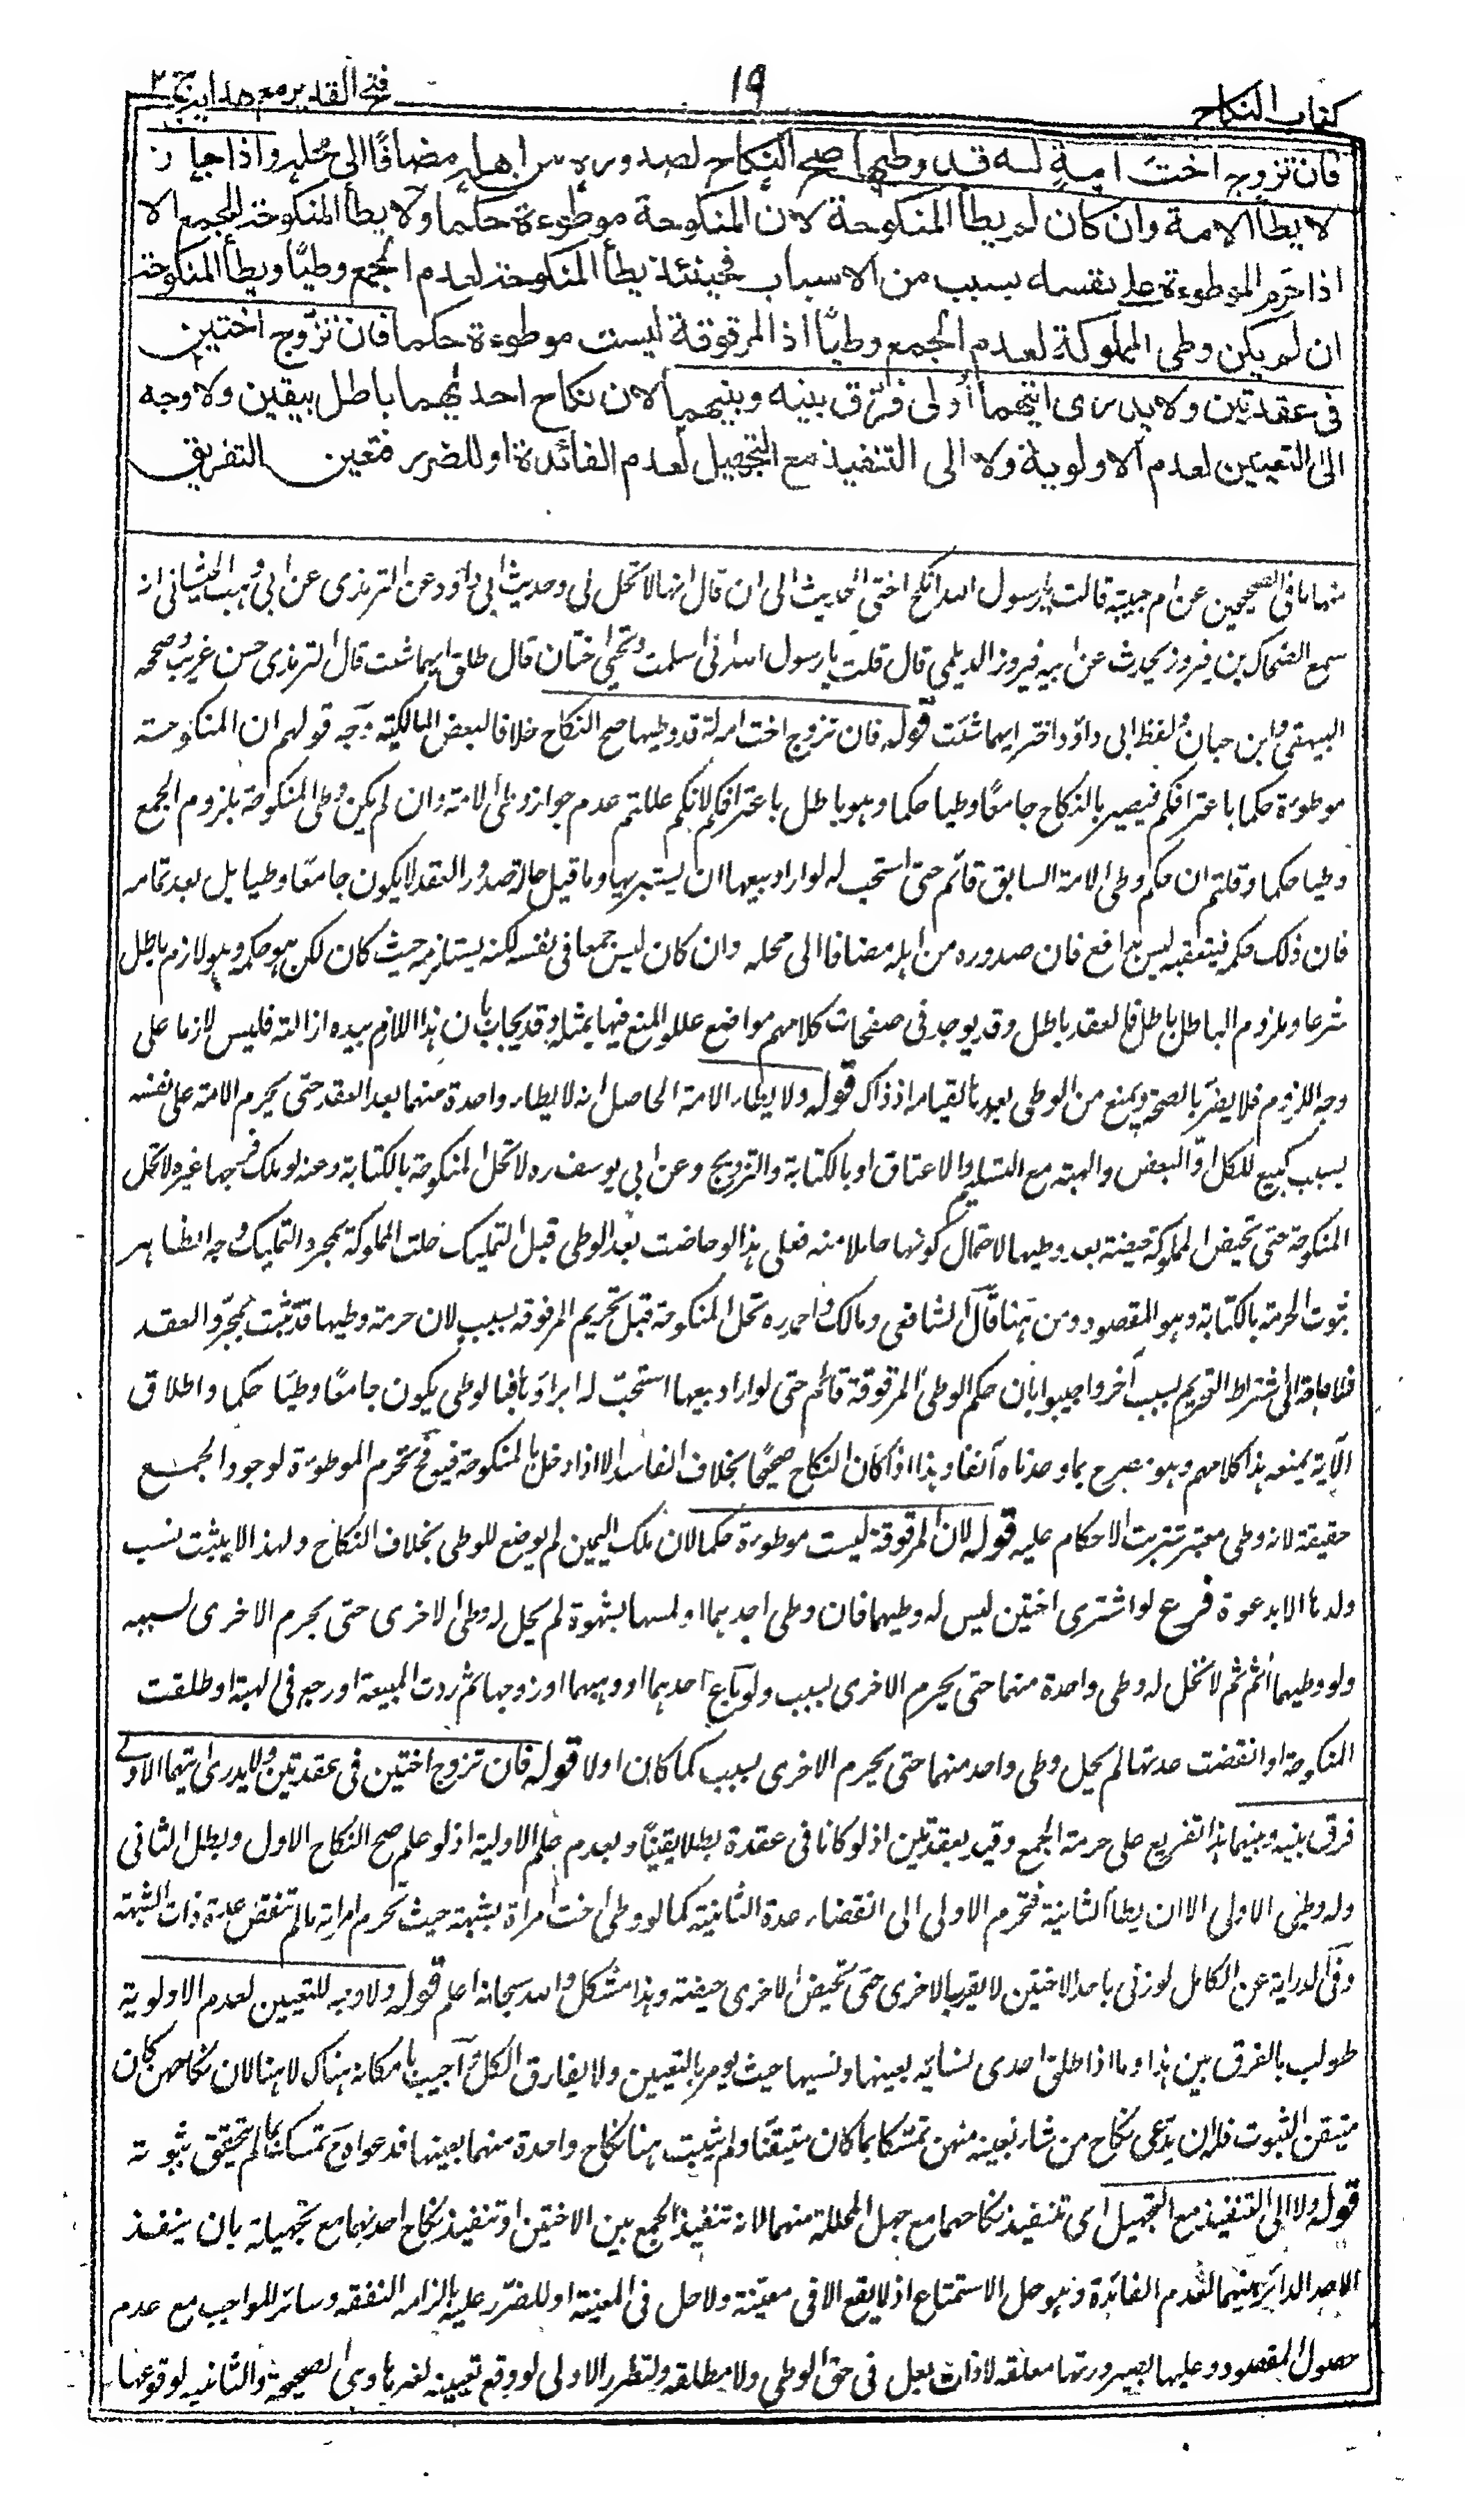 كتاب النكاح
١٩
فتح القدير مع هدايه ج ٢
فان تزوج اخت امة له قد وطيها صح النكاح لصدوره من اهله مضافا الى محله واذا جاز
لا يطأ الامة وان كان لم يطأ المنكوحة لان المنكوحة موطوءة حكما ولا يطأ المنكوحة للجمع الا
اذا حرم الموطوءة على نفسه بسبب من الاسباب فحينئذ يطأ المنكوحة لعدم الجمع وطيا ويطأ المنكوحة
ان لم يكن وطى المملوكة لعدم الجمع وطيا اذ المرقوقة ليست موطوءة حكما فان تزوج اختين
فى عقدتين ولا يدرى ايتهما اولى فرق بينه وبينهما لان نكاح احدٰهما باطل بيقين ولا وجه
الى التعيين لعدم الاولوية ولا الى التنفيذ مع التجهيل لعدم الفائدة او للضرر فتعين التفريق
منها ما فى الصحيحين عن ام حبيبة قالت يا رسول الله انكح اختى الحديث الى ان قال انها لا تحل لى وحديث ابى داؤد عن الترمذى عن ابى وهب الجيشانى انه
سمع الضحاك بن فيروز يحدث عن ابيه فيروز الديلمى قال قلت يا رسول الله انى اسلمت وتحتى اختان قال طلق ايهما شئت قال الترمذى حسن غريب وصححه
البيهقى وابن حبان ولفظ ابى داؤد اختر ايهما شئت قوله فان تزوج اخت امة له قد وطيها صح النكاح خلافا لبعض المالكية وجه قولهم ان المنكوحة
موطوءة حكما باعترافكم فيصير بالنكاح جامعا وطيا حكما وهو باطل باعترافكم لانكم عللتم عدم جواز وطى الامة وان لم يكن وطى المنكوحة بلزوم الجمع
وطيا حكما وقلتم ان حكم وطى الامة السابق قائم حتى استحب له لو اراد بيعها ان يستبريها وما قيل حالة صدور العقد لا يكون جامعا وطيا بل بعد تمامه
فان ذلك حكمه فيتعقبه ليس بدافع فان صدوره من اهله مضافا الى محله وان كان ليس جمعا فى نفسه لكنه يستلزمه حيث كان لكن هو حكمه وهو لازم باطل
شرعا وملزوم الباطل باطل فالعقد باطل وقد يوجد فى صفحات كلامهم مواضع عللوا المنع فيها بمثله وقد يجاب بان هذا اللازم بيده ازالته فليس لازما على
وجه اللزوم فلا يضر بالصحة ويمنع من الوطى بعدها لقيامه اذ ذاك قوله ولا يطاء الامة الحاصل انه لا يطاء واحدة منهما بعد العقد حتى يحرم الامة على نفسه
بسبب كبيع للكل او البعض والهبة مع التسليم والاعتاق او بالكتابة والتزويج وعن ابى يوسف ره لا تحل المنكوحة بالكتابة وعنه لو ملك فرجها غيره لا تحل
المنكوحة حتى تحيض المملوكة حيضة بعد وطيها لاحتمال كونها حاملا منه فعلى هذا لو حاضت بعد الوطى قبل التمليك حلت المملوكة بمجرد التمليك وجه الظاهر
ثبوت الحرمة بالكتابة وهو المقصود ومن هنا قال الشافعى ومالك واحمد ره تحل المنكوحة قبل تحريم المرقوقة بسبب لان حرمة وطيها قد ثبت بمجرد العقد
فلا حاجة الى اشتراط التحريم بسبب آخر واجيبوا بان حكم الوطى المرقوقة قائم حتى لو اراد بيعها استحب له ابراؤها فبالوطى يكون جامعا وطيا حكما واطلاق
الآية يمنعه هذا كلامهم وهو مصرح بما وعدناه آنفا وهذا اذا كان النكاح صحيحا بخلاف الفاسد الا اذا دخل بالمنكوحة فيه فح تحرم الموطوءة لوجود الجمع
حقيقة لانه وطى معتبر تترتب الاحكام عليه قوله لان المرقوقة ليست موطوءة حكما لان ملك اليمين لم يوضع للوطى بخلاف النكاح ولهذا لا يثبت نسب
ولدها الا بدعوة فرع لو اشترى اختين ليس له وطيهما فان وطى احدٰهما او لمسها بشهوة لم يحل له وطى الاخرى حتى يحرم الاخرى بسببه
ولو وطيهما اثم ثم لا تحل له وطى واحدة منهما حتى يحرم الاخرى بسبب ولو باع احدٰهما او وهبها او زوجها ثم ردت المبيعة او رجع فى الهبة او طلقت
المنكوحة او انقضت عدتها لم يحل وطى واحد منهما حتى يحرم الاخرى بسبب كما كان اولا قوله فان تزوج اختين فى عقدتين ولا يدرى ايتهما الاولى
فرق بينه وبينهما هذا تفريع على حرمة الجمع وقيد بعقدتين اذ لو كانا فى عقدة بطلا يقينا وبعدم علم الاولية اذ لو علم صح النكاح الاول وبطل الثانى
وله وطى الاولى الا ان يطأ الثانية فتحرم الاولى الى انقضاء عدة الثانية كما لو وطى اخت امراة بشبهة حيث تحرم امراته ما لم تنقض عدة ذات الشبهة
وفى الدراية عن الكامل لو زنى باحد الاختين لا يقرب الاخرى حتى تحيض الاخرى حيضة وهذا مشكل والله سبحانه اعلم قوله ولا وجه للتعيين لعدم الاولوية
طولب بالفرق بين هذا وما اذا طلق احدى نسائه بعينها ونسيها حيث يومر بالتعيين ولا يفارق الكل اجيب بامكانه هناك لا هنا لان نكاحهن كان
متيقن الثبوت فله ان يدعى نكاح من شاء بعينه منهن تمسكا بما كان متيقنا ولم يثبت هنا نكاح واحدة منهما بعينها فدعواه ح تمسك بما لم يتحقق ثبوته
قوله ولا الى التنفيذ مع التجهيل اى تنفيذ نكاحهما مع جهل المحللة منهما لانه تنفيذ الجمع بين الاختين او تنفيذ نكاح احدٰهما مع تجهيله بان ينفذ
الاحد الدائر بينهما لعدم الفائدة وهو حل الاستمتاع اذ لا يقع الا فى معينة ولا حل فى المعينة او للضرر عليه بالزامه النفقة وسائر المواجب مع عدم
حصول المقصود وعليها بصيرورتها معلقة لا ذات بعل فى حق الوطى ولا مطلقة ولتضرر الاولى لو وقع تعيينه لغيرها وهى الصحيحة والثانية لوقوعها